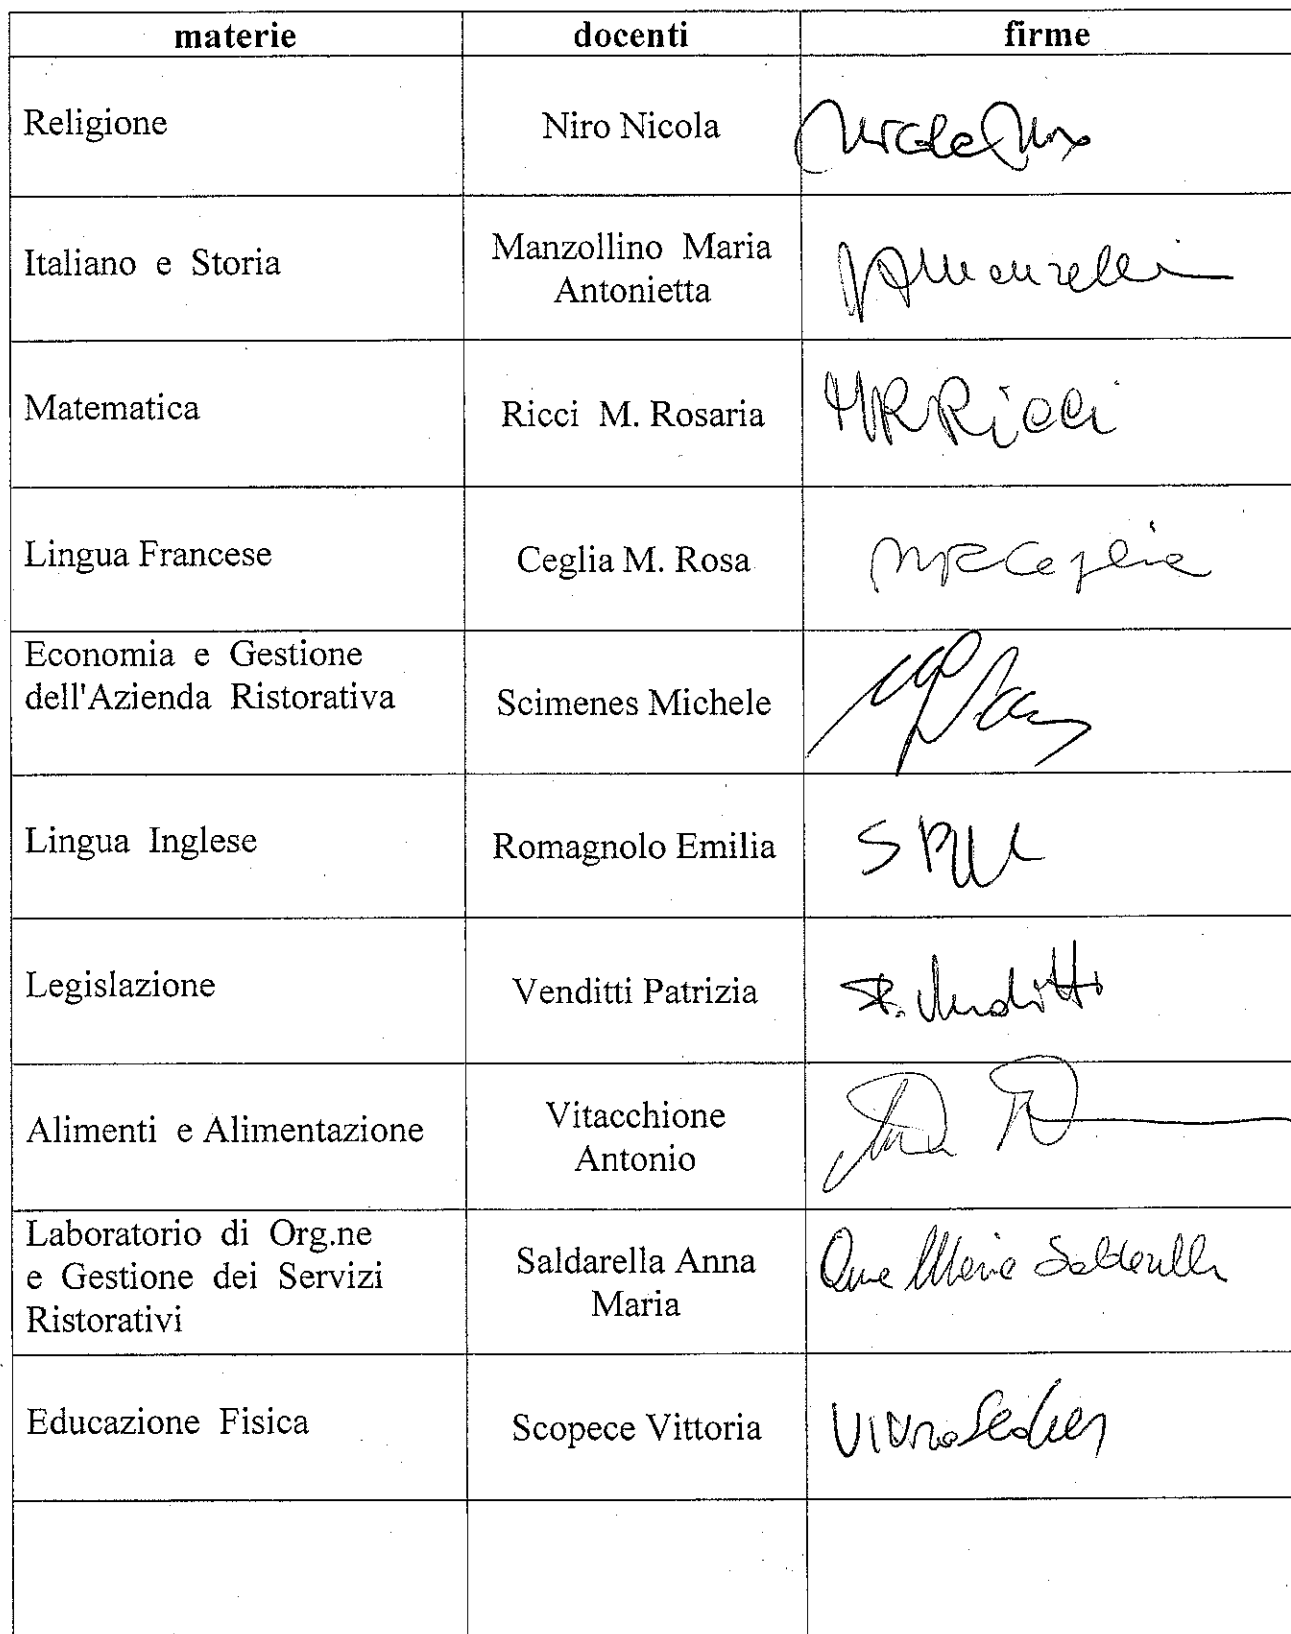 materie docenti firme
Religione Niro Nicola
Italiano e Storia Manzollino Maria
Antonietta
Matematica Ricci M. Rosaria MRRicci
Lingua Francese Ceglia M. Rosa MRCeglia
Economia e Gestione
dell'Azienda Ristorativa Scimenes Michele
Lingua Inglese Romagnolo Emilia
Legislazione Venditti Patrizia P. Venditti
Alimenti e Alimentazione Vitacchione
Antonio
Laboratorio di Org.ne
e Gestione dei Servizi Saldarella Anna Anna Maria Saldarella
Ristorativi Maria
Educazione Fisica Scopece Vittoria